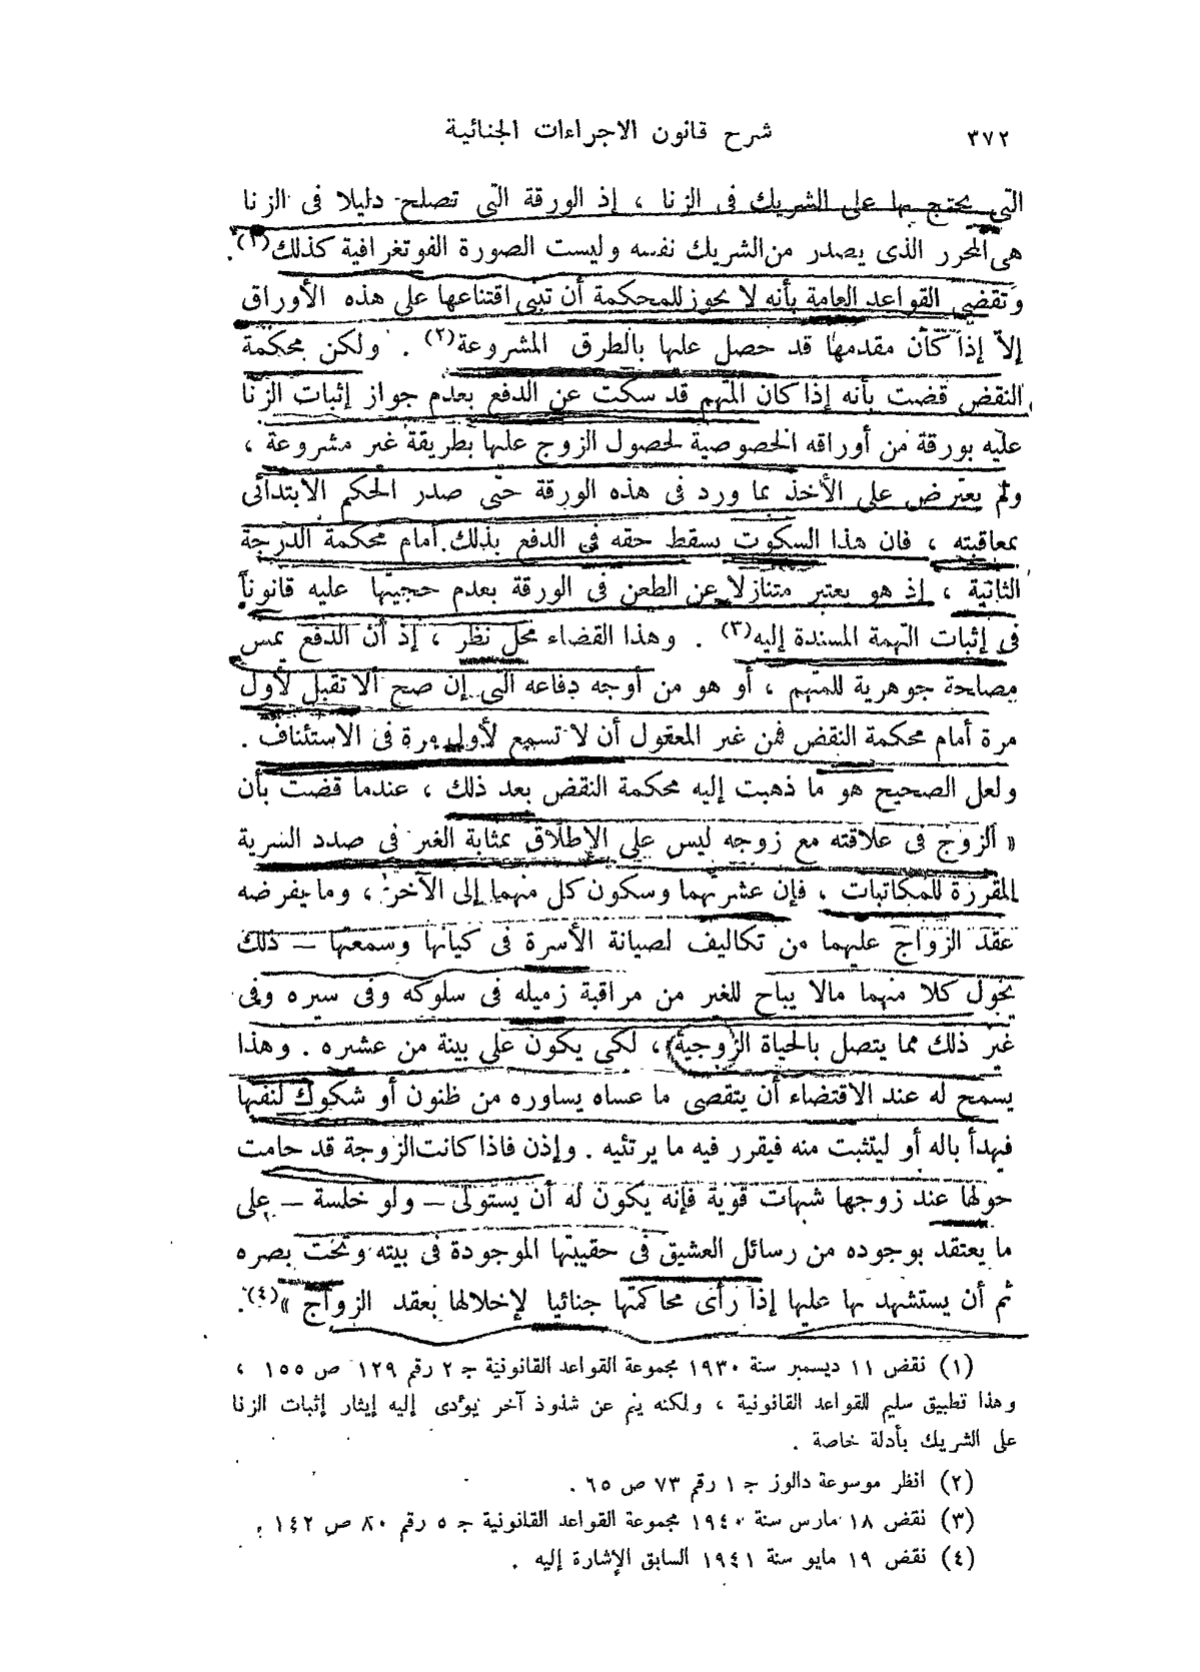 ٣٧٢
شرح قانون الاجراءات الجنائية
التى يحتج بها على الشريك فى الزنا ، إذ الورقة التى تصلح دليلا فى الزنا
هى المحرر الذى يصدر من الشريك نفسه وليست الصورة الفوتغرافية كذلك(١).
وتقضى القواعد العامة بأنه لا يجوز للمحكمة أن تبنى اقتناعها على هذه الأوراق
إلا إذا كان مقدمها قد حصل عليها بالطرق المشروعة(٢) . ولكن محكمة
النقض قضت بأنه إذا كان المتهم قد سكت عن الدفع بعدم جواز إثبات الزنا
عليه بورقة من أوراقه الخصوصية لحصول الزوج عليها بطريقة غير مشروعة ،
ولم يعترض على الأخذ بما ورد فى هذه الورقة حتى صدر الحكم الابتدائى
بمعاقبته ، فان هذا السكوت يسقط حقه فى الدفع بذلك أمام محكمة الدرجة
الثانية ، إذ هو يعتبر متنازلا عن الطعن فى الورقة بعدم حجيتها عليه قانوناً
فى إثبات التهمة المسندة إليه(٣) . وهذا القضاء محل نظر ، إذ أن الدفع يمس
مصلحة جوهرية للمتهم ، أو هو من أوجه دفاعه التى إن صح ألا تقبل لأول
مرة أمام محكمة النقض فمن غير المعقول أن لا تسمع لأول مرة فى الاستئناف .
ولعل الصحيح هو ما ذهبت إليه محكمة النقض بعد ذلك ، عندما قضت بأن
« الزوج فى علاقته مع زوجه ليس على الإطلاق بمثابة الغير فى صدد السرية
المقررة للمكاتبات ، فإن عشرتهما وسكون كل منهما إلى الآخر ، وما يفرضه
عقد الزواج عليهما من تكاليف لصيانة الأسرة فى كيانها وسمعتها — ذلك
يخول كلا منهما مالا يباح للغير من مراقبة زميله فى سلوكه وفى سيره وفى
غير ذلك مما يتصل بالحياة الزوجية ، لكى يكون على بينة من عشيره . وهذا
يسمح له عند الاقتضاء أن يتقصى ما عساه يساوره من ظنون أو شكوك لنفيها
فيهدأ باله أو ليتثبت منه فيقرر فيه ما يرتئيه . وإذن فاذا كانت الزوجة قد حامت
حولها عند زوجها شبهات قوية فإنه يكون له أن يستولى — ولو خلسة — على
ما يعتقد بوجوده من رسائل العشيق فى حقيبتها الموجودة فى بيته وتحت بصره
ثم أن يستشهد بها عليها إذا رأى محاكمتها جنائيا لإخلالها بعقد الزواج »(٤).
(١) نقض ١١ ديسمبر سنة ١٩٣٠ مجموعة القواعد القانونية ج ٢ رقم ١٢٩ ص ١٥٥ ،
وهذا تطبيق سليم للقواعد القانونية ، ولكنه ينم عن شذوذ آخر يؤدى إليه إيثار إثبات الزنا
على الشريك بأدلة خاصة .
(٢) انظر موسوعة دالوز ج ١ رقم ٧٣ ص ٦٥ .
(٣) نقض ١٨ مارس سنة ١٩٤٠ مجموعة القواعد القانونية ج ٥ رقم ٨٠ ص ١٤٢ .
(٤) نقض ١٩ مايو سنة ١٩٤١ السابق الإشارة إليه .